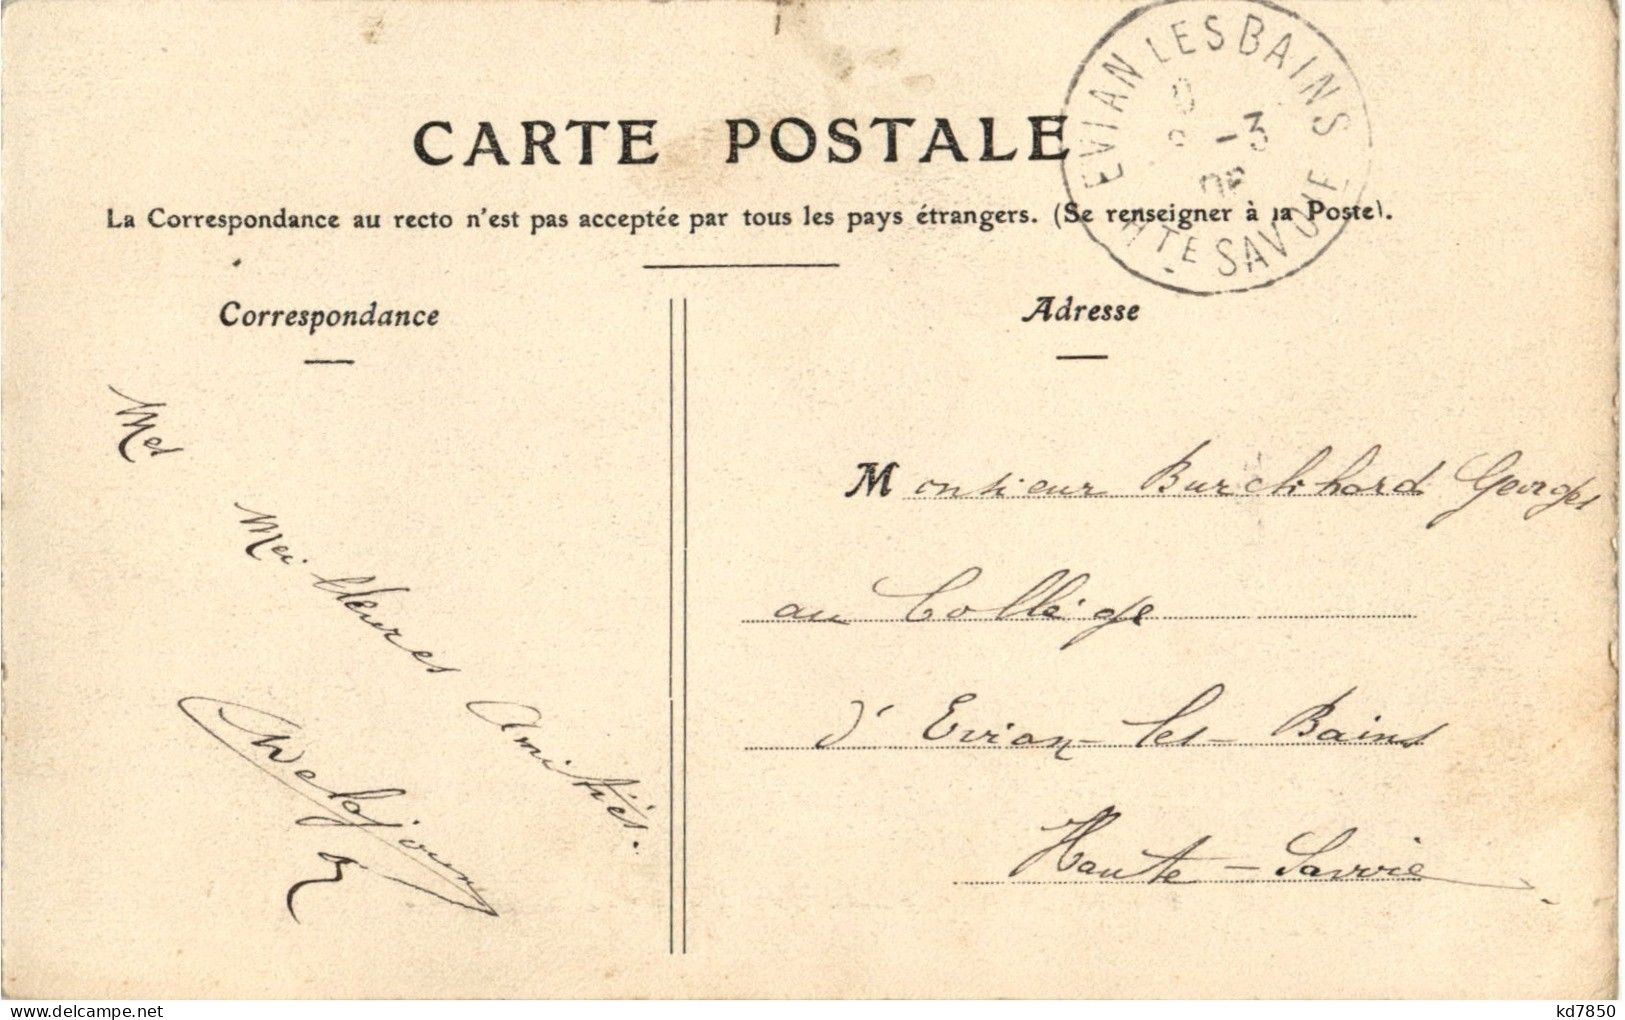 EVIAN LES BAINS
-3
HTE SAVOIE
CARTE POSTALE
La Correspondance au recto n'est pas acceptée par tous les pays étrangers. (Se renseigner à la Poste).
Correspondance
Mes
Meilleures
Amitiés.
Adresse
Monsieur Burckhard Georges
au Collège
d'Evian-les-Bains
Haute-Savoie
kd7850